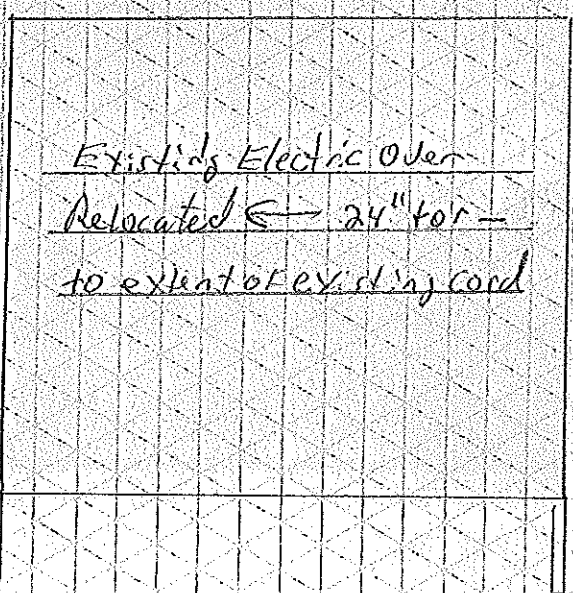 Existing Electric Oven
Relocated ← 24" tor -
to extent of existing cord